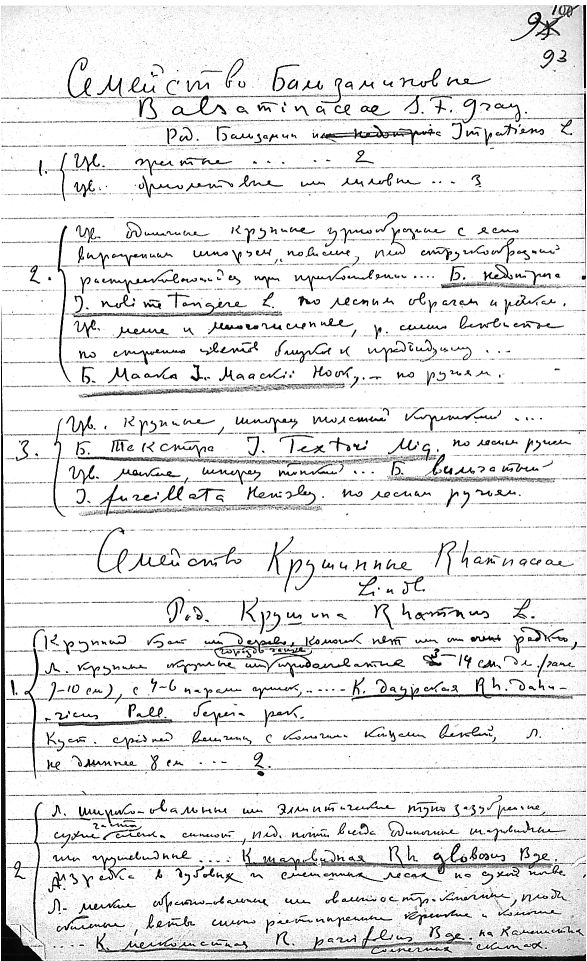 100
93
Семейство Бальзаминовые
Balsaminaceae S. F. Gray.
Род. Бальзамин Impatiens L
1. Цв. желтые .... 2
Цв. фиолетовые или лиловые ... 3
2. Цв. одиночные крупные с ясно
шпорцем, повислые, плод стручкообразный
растрескивающийся при прикосновении .... Б. недотрога
I. noli me tangere L. по лесным оврагам и рекам.
Цв. мелкие и многочисленные, р. сильно ветвистое
по строению цветов близка к предыдущему ...
Б. Маака I. Maackii Hook, – по ручьям.
3. Цв. крупные, шпорец толстый короткий ....
Б. Текстора I. Textori Miq. по лесным ручьям
Цв. мелкие, шпорец тонкий ... Б. вильчатый
I. furcillata Hemsley. по лесным ручьям.
Семейство Крушинные Rhamnaceae
Lindl.
Род. Крушина Rhamnus L.
1. Крупный куст или дерево, колючек нет или они очень редки,
Л. крупные округлые или продолговатые 3-14 см дл. (чаще
7-10 см), с 4-6 парами жилок, ..... К. даурская Rh. dahu-
ricus Pall. берега рек.
Куст. средней величины с колючими концами ветвей, Л.
не длиннее 8 см ... 2.
2 Л. широкоовальные или эллиптические тупо зазубренные,
сухие часто слегка синеют, плод. почти всегда одиночные шаровидные
или грушевидные .... К шаровидная Rh globosus Bge.
Изредка в дубовых и смешанных лесах по сухой почве.
Л. мелкие или плоды
обильные, ветви сильно растопыренные крепкие и колючие
.... К. мелколистная R. parvifolius Bge. на каменистых
солнечных скатах.